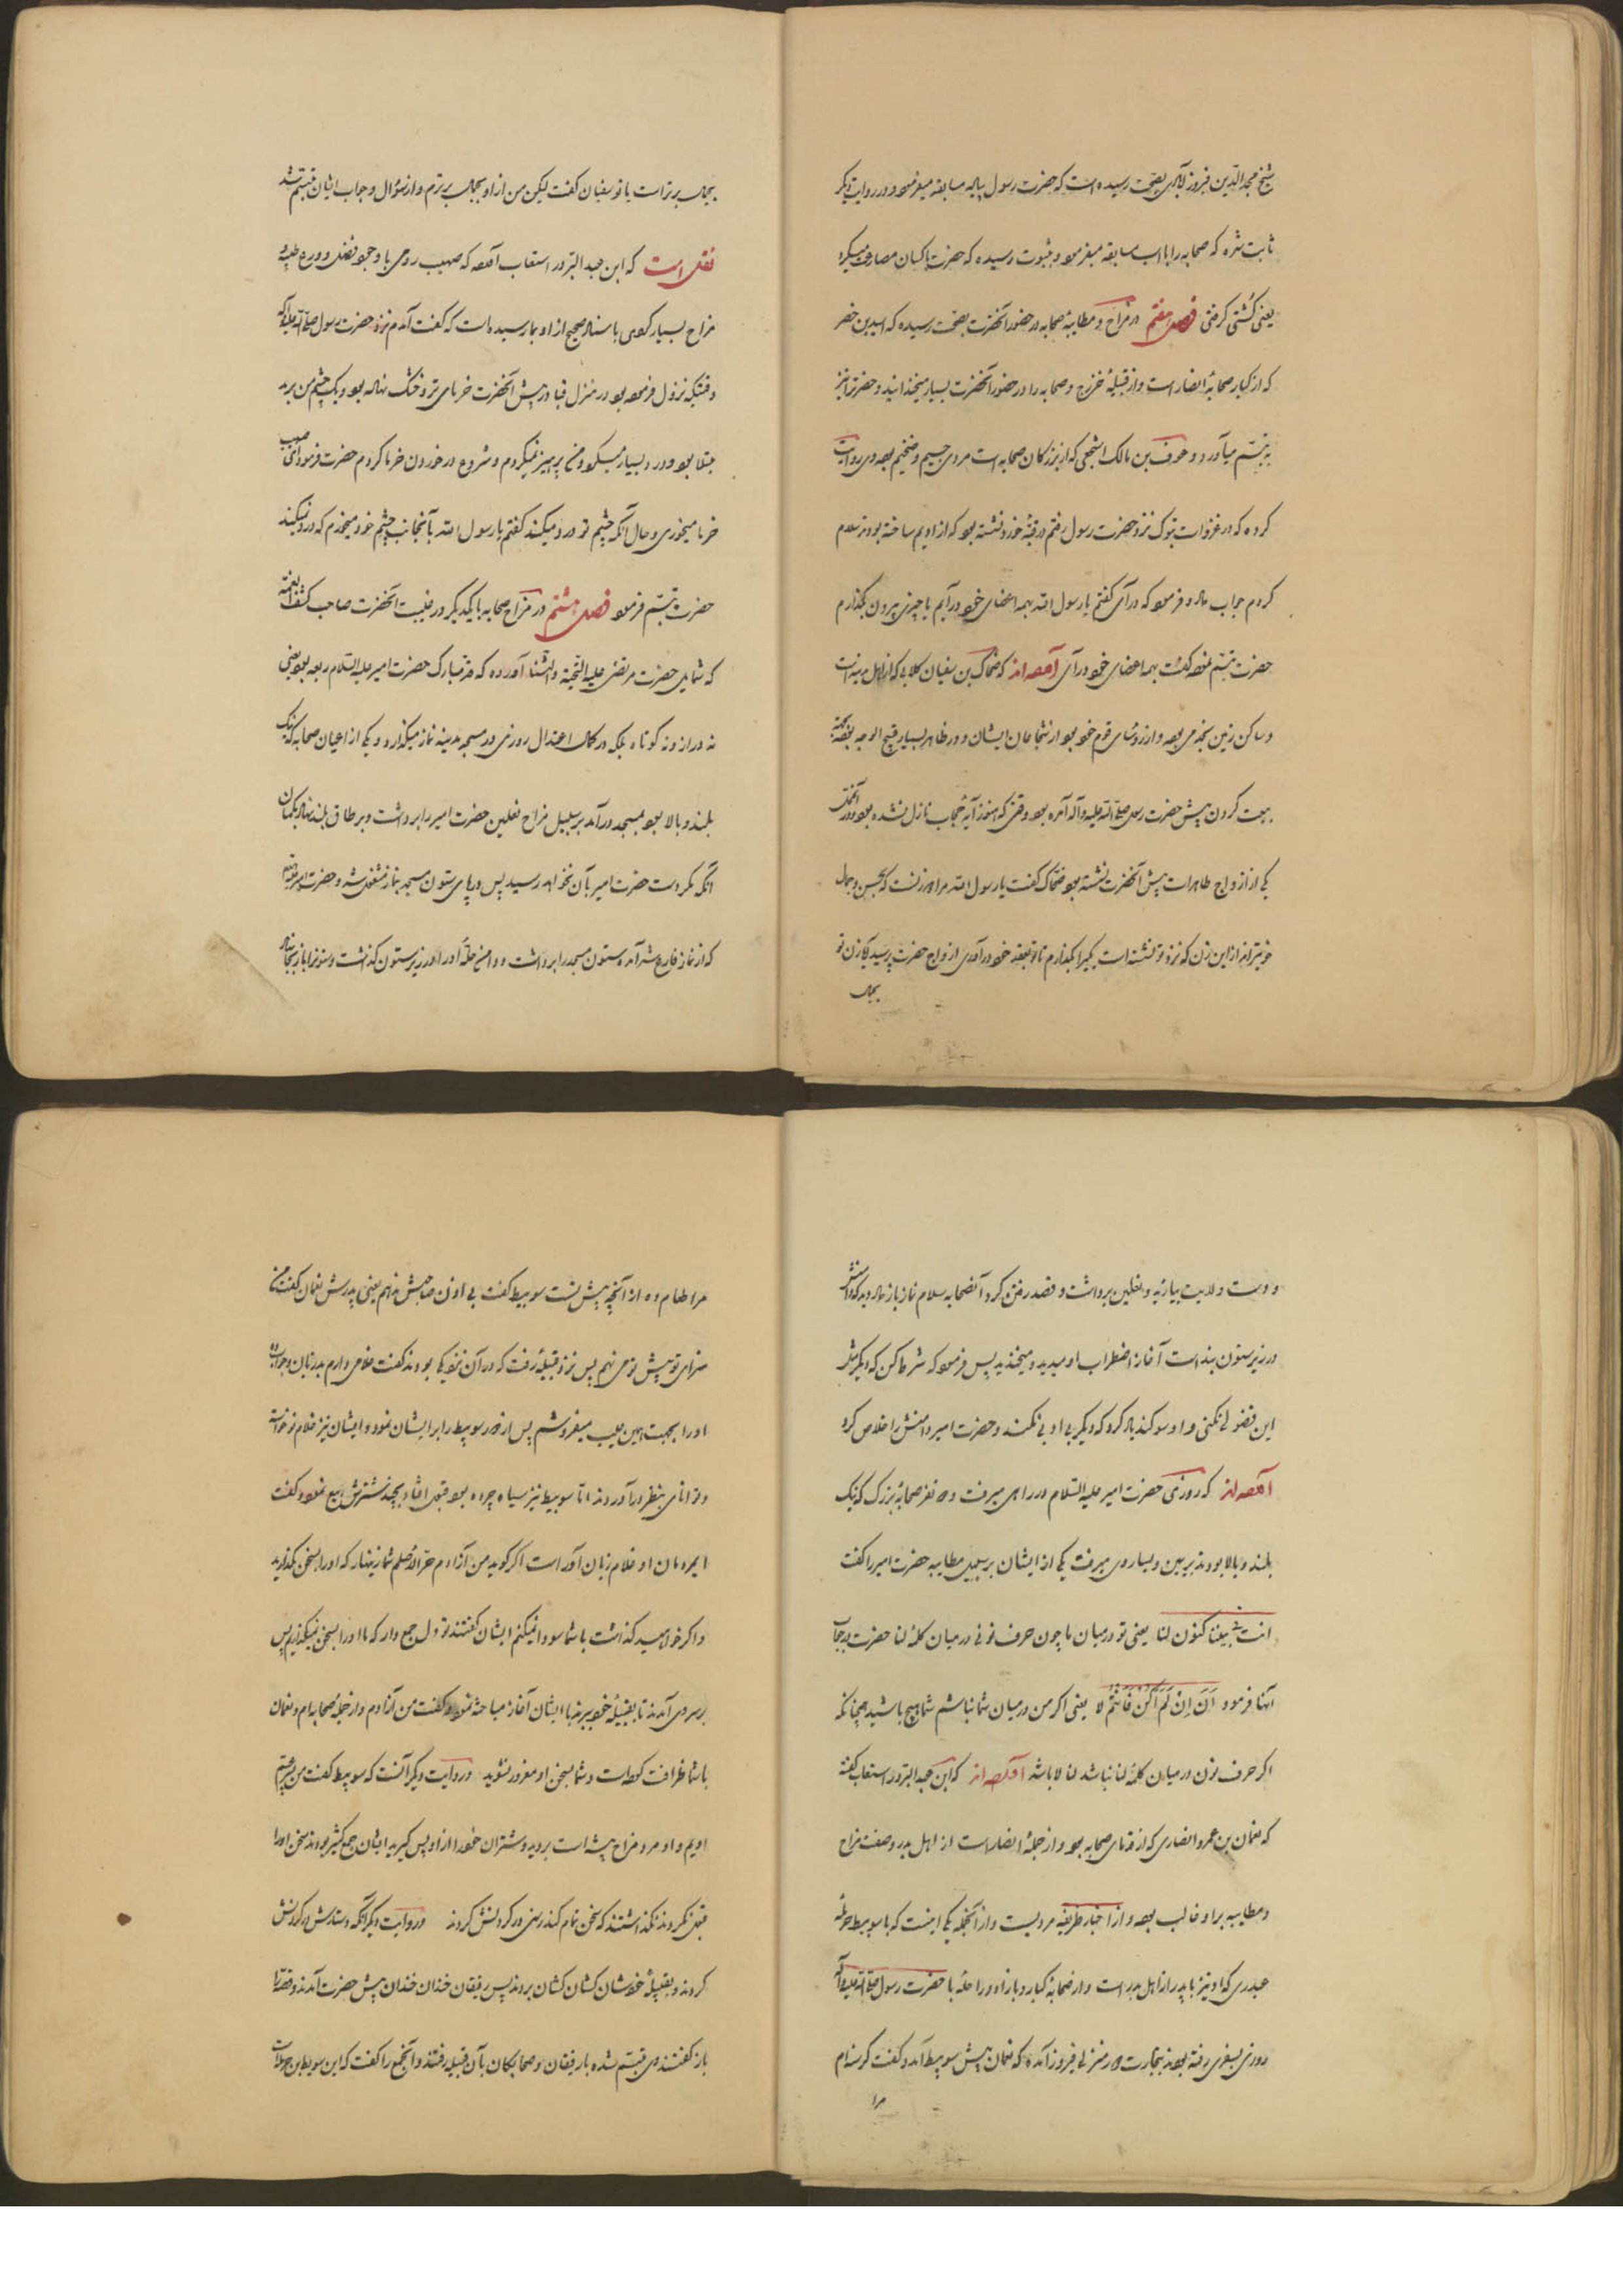 شیخ مجدالدین فیروزآبادی بصحت رسیده است که حضرت رسول پیاده مسابقه میفرمود و در روایت دیگر
ثابت شده که صحابه را با اسب مسابقه میفرمود و بثبوت رسیده که حضرت با کسان مصارعت میکرد
یعنی کشتی گرفتی فصل هفتم در مزاح و مطایبهٔ صحابه در حضور آنحضرت بصحت رسیده که اسید بن حضر
که از کبار صحابهٔ انصار است و از قبیلهٔ خزرج و صحابه را در حضور آنحضرت بسیار میخندانید و حضرت را نیز
به تبسم میآورد و عوف بن مالک اشجعی که از بزرگان صحابه است مردی جسیم و ضخیم بوده وی روایت
کرده که در غزوات تبوک نزد حضرت رسول رفتم در قبهٔ خورد نشسته بود که از ادیم ساخته بودند سلام
کردم جواب داد و فرمود که درآی گفتم یا رسول الله بهمه اعضای خود درآیم یا چیزی بیرون بگذارم
حضرت تبسم نموده گفت بهمه اعضای خود درآی آورده‌اند که ضحاک بن سفیان کلابی که از اهل مدینه است
و ساکن زمین نجد می بوده و از رؤسای قوم خود بود از شجاعان ایشان و در ظاهر بسیار قبیح الوجه بوده
بیعت کردن پیش حضرت رسول صلی الله علیه و آله آمده بود وقتی که هنوز آیهٔ حجاب نازل نشده بود و در آنوقت
یکی از ازواج طاهرات پیش آنحضرت نشسته بود ضحاک گفت یا رسول الله مرا دو زنست که بحسن و جمال
خوبتراند از این زن که نزد تو نشسته است یکیرا بگذارم تا تو بعقد خود درآوری ازواج حضرت پرسید که زن تو
بجمال
بجمال برتر است یا تو سفیان گفت لیکن من از او بجمال برترم و از سؤال و جواب ایشان متبسم شد
نقل است که ابن عبد البر در استیعاب آورده که صهیب رومی با وجود فضل و ورع طیبه و
مزاح بسیار کردی باسناد صحیح از او بما رسیده است که گفت آمدم نزد حضرت رسول صلی الله علیه و آله
وقتیکه نزول فرموده بود در منزل قبا و در پیش آنحضرت خرمای تر و خشک نهاده بود و یک چشم من برمد
مبتلا بود و درد بسیار میکرد و من پرهیز نمیکردم و شروع در خوردن خرما کردم حضرت فرمود ای صهیب
خرما میخوری و حال آنکه چشم تو درد میکند گفتم یا رسول الله بآنجانب چشم خود میخورم که درد نمیکند
حضرت تبسم فرمود فصل هشتم در مزاح صحابه با یکدیگر در غیبت آنحضرت صاحب کشف الغمه
که شمایل حضرت مرتضی علیه التحیة والثنا آورده که قد مبارک حضرت امیر علیه السلام ربعه بود یعنی
نه دراز و نه کوتاه بلکه در کمال اعتدال روزی در مسجد مدینه نماز میگذارد و یکی از اعیان صحابه که نیک
بلند و بالا بود بمسجد درآمد بر سبیل مزاح نعلین حضرت امیر را برداشت و بر طاق بلند نهاد بگمان
آنکه مگر دست حضرت امیر بآن نخواهد رسید پس در پای ستون مسجد بنماز مشغول شد و حضرت امیر
که از نماز فارغ شد آمد و ستون مسجد را برداشت و دامن حلهٔ او را در زیر ستون گذاشت و ستون را باز بجا نهاد
و دست ولایت بیازید و نعلین برداشت و قصد رفتن کرد آنصحابه سلام نماز باز داد و دید که دامنش
در زیر ستون بند است آغاز اضطراب او میدید و میخندید پس فرمود که شرط کن که دیگر مثل
این فضولی نکنی و او سوگند یاد کرد که دیگر بی ادبی نکند و حضرت امیر دامنش را خلاص کرد
آورده‌اند که روزی حضرت امیر علیه السلام در راهی میرفت و دو نفر صحابهٔ بزرگ که نیک
بلند و بالا بودند بر یمین و یسار وی میرفت یکی از ایشان بر سبیل مطایبه حضرت امیر را گفت
انت بیننا کنون لنا یعنی تو در میان ما چون حرف نونی در میان کلمهٔ لنا حضرت در جواب
آنها فرمود ان لم اکن فانتم لا یعنی اگر من در میان شما نباشم شما هیچ باشید همچنانکه
اگر حرف نون در میان کلمهٔ لنا نباشد لنا لا باشد آورده‌اند که ابن عبد البر در استیعاب گفته
که نعمان بن عمرو انصاری که از قدمای صحابه بود و از جملهٔ انصار است از اهل بدر و صفت مزاح
و مطایبه بر او غالب بوده و از اخبار طریفه مرویست و از آنجمله یکی اینست که با سویبط حرمله
عبدری که او نیز با پدر از اهل بدر است و از صحابهٔ کبار و با زاد و راحله با حضرت رسول صلی الله علیه و آله
روزی بسفری رفته بودند بتجارت و در منزلی فرود آمده که نعمان پیش سویبط آمد و گفت گرسنه‌ام
مرا
مرا طعام ده از آنچه پیش تست سویبط گفت بی اذن صاحبش ندهم یعنی پدرش نعمان گفت من
سزای تو پیش تو می نهم پس نزد قبیلهٔ رفت که در آن نزدیکی بودند گفت غلامی دارم بد زبان و جواب ده
او را بجهت همین عیب میفروشم پس از دور سویبط را برایشان نمود و ایشان نیز غلام نو خاسته
و توانای بنظر درآوردند اما سویبط نیز سیاه چرده بود قبول افتاد بچند شترش بیع نمود و گفت
ایمردمان او غلام زبان آور است اگر گوید من آزادم حر الاصلم شما زینهار که او را بسخن مگذارید
و اگر خواهید گذاشت با شما سودا نمیکنم ایشان گفتند تو دل جمع دار که ما او را بسخن نمیگذاریم پس
بر سر وی آمدند تا بقبیلهٔ خود برند با ایشان آغاز مباحثه نمود گفت من آزادم و از جملهٔ صحابه‌ام و نعمان
با شما ظرافت کرده است و شما بسخن او مغرور نشوید و در روایت دیگر آنست که سویبط گفت من
اویم و او مرد مزاح پیشه است بروید و شتران خود را از او پس گیرید ایشان جمع کثیر بودند سخن او را
قبول نکردند نگذاشتند که سخن تمام کند رسن در گردنش کردند و در روایت دیگر آنکه دستارش در گردنش
کردند و بقبیلهٔ خودشان کشان کشان بردند پس رفیقان خندان خندان پیش حضرت آمدند و قصه را
باز گفتند وی متبسم شده با رفیقان و صحابگان بآن قبیله رفتند و آنجمع را گفت که این سویبط بن حرمله است